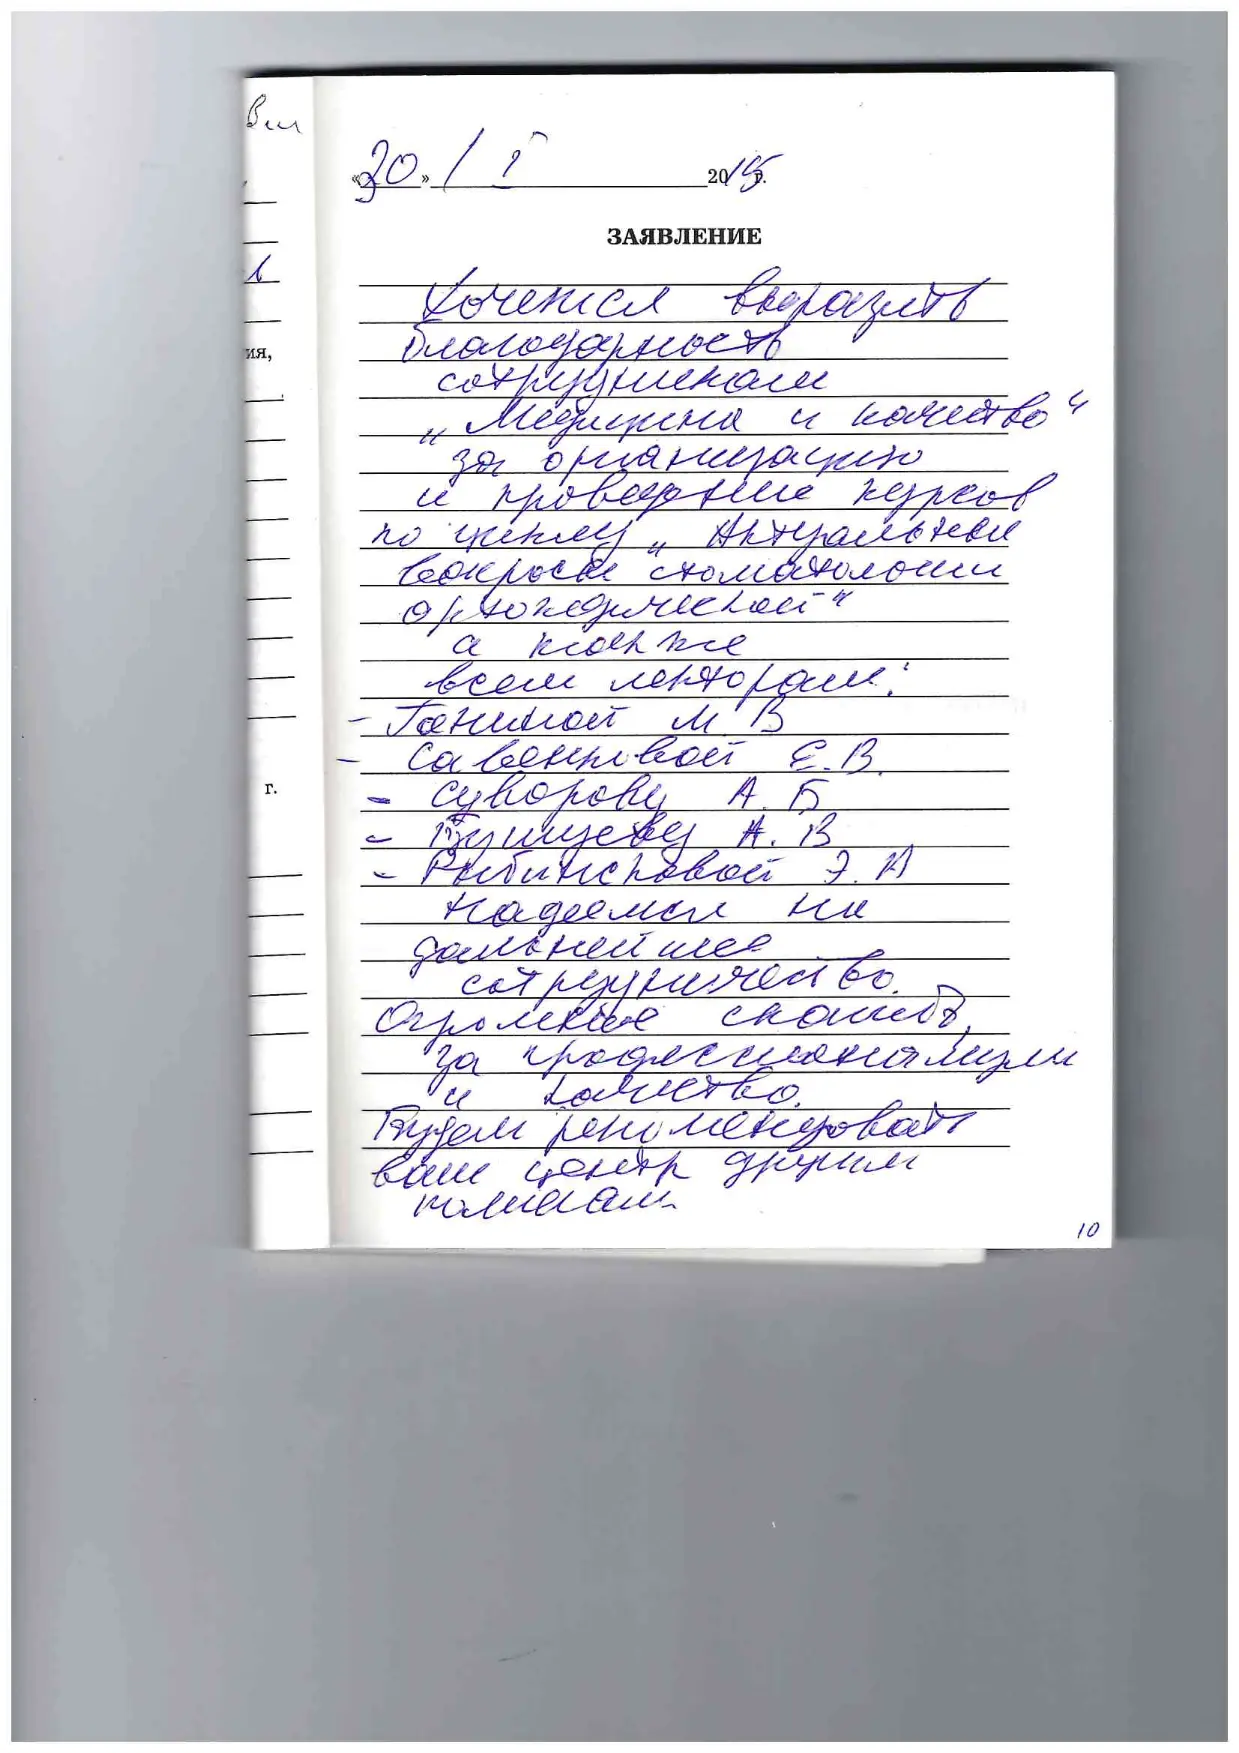 «30» / I 2015 г.
ЗАЯВЛЕНИЕ
Хочется выразить
благодарность
сотрудникам
„Медицина и качество“
за организацию
и проведение курсов
по циклу „Актуальные
вопросы стоматологии
ортопедической“
а также
всем лекторам:
- Ганиной М В
- Савенковой Е.В.
- Суворову А. Б
- А. В
- Э. А
Надеемся на
дальнейшее
сотрудничество.
Огромное спасибо,
за профессионализм
и качество.
Будем рекомендовать
ваш центр другим
10
ия,
г.